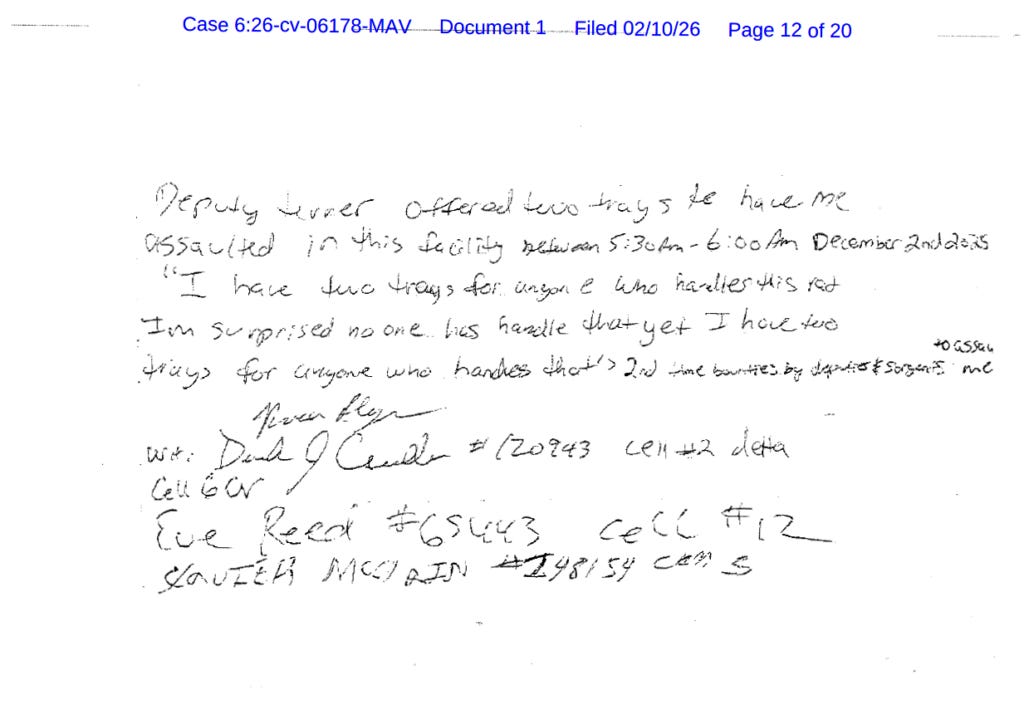 Case 6:26-cv-06178-MAV Document 1 Filed 02/10/26 Page 12 of 20
Deputy terner offered two trays to have me
assaulted in this facility between 5:30Am-6:00Am December 2nd 2025
"I have two trays for anyone who handles this rat
Im surprised no one has handle that yet I have two
to assau
trays for anyone who handles that" 2nd time bounties by deputies & Sargents me
Wit: J #120943 Cell #2 delta
Cell 6
Eve Reed #65443 Cell #12
#148154 Cell 5